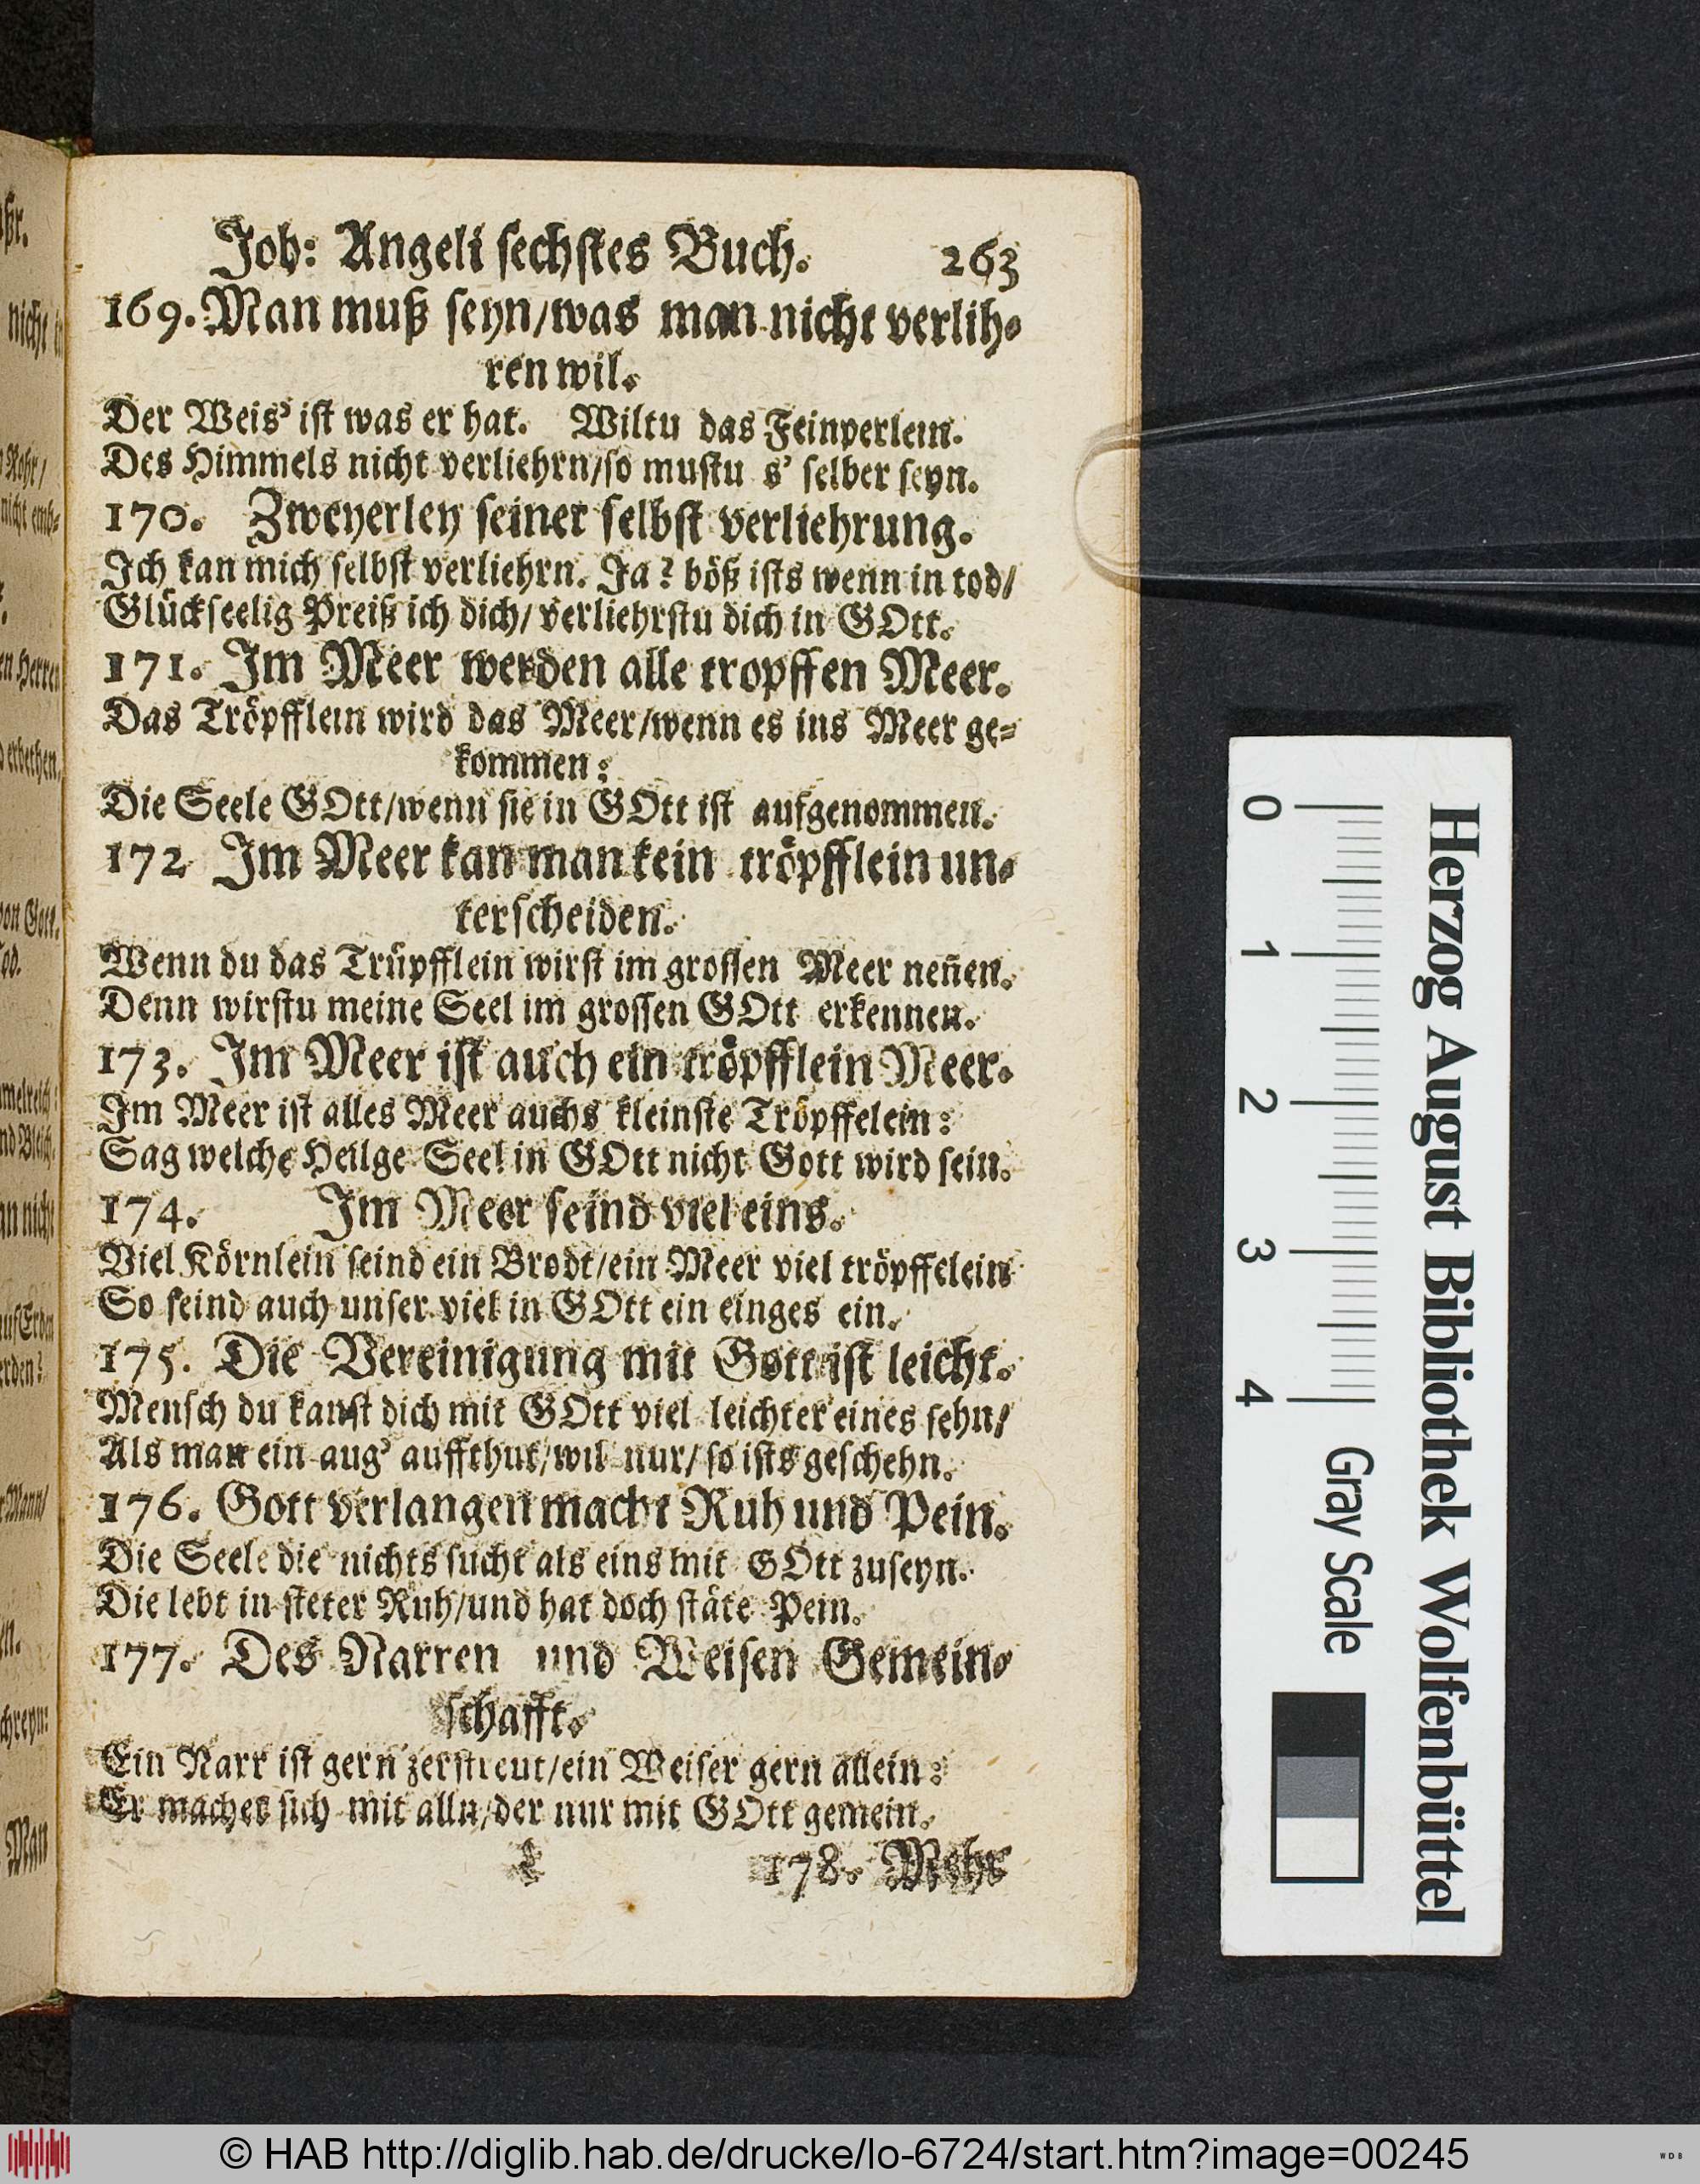 Joh: Angeli sechstes Buch. 263
169. Man muß seyn/was man nicht verlih-
ren wil.
Der Weis' ist was er hat. Wiltu das Feinperlein.
Des Himmels nicht verliehrn/so mustu s' selber seyn.
170. Zweyerley seiner selbst verliehrung.
Ich kan mich selbst verliehrn. Ja? böß ists wenn in tod/
Glückseelig Preiß ich dich/ verliehrstu dich in GOtt.
171. Im Meer werden alle tropffen Meer.
Das Tröpfflein wird das Meer/wenn es ins Meer ge-
kommen:
Die Seele GOtt/wenn sie in GOtt ist aufgenommen.
172 Im Meer kan man kein tröpfflein un-
terscheiden.
Wenn du das Trüpfflein wirst im grossen Meer neñen.
Denn wirstu meine Seel im grossen GOtt erkennen.
173. Im Meer ist auch ein tröpfflein Meer.
Im Meer ist alles Meer auchs kleinste Tröpffelein:
Sag welche Heilge Seel in GOtt nicht Gott wird sein.
174. Im Meer seind viel eins.
Viel Körnlein seind ein Brodt/ein Meer viel tröpffelein
So seind auch unser viel in GOtt ein einges ein.
175. Die Vereinigung mit Gott ist leicht.
Mensch du kanst dich mit GOtt viel leichter eines sehn/
Als man ein aug' auffthut/wil nur/ so ists geschehn.
176. Gott verlangen macht Ruh und Pein.
Die Seele die nichts sucht als eins mit GOtt zuseyn.
Die lebt in steter Ruh/und hat doch stäte Pein.
177. Des Narren und Weisen Gemein-
schafft.
Ein Narr ist gern zerstreut/ein Weiser gern allein:
Er machet sich mit alln/der nur mit GOtt gemein.
178. Mehr
Herzog August Bibliothek Wolfenbüttel
0 1 2 3 4 Gray Scale
© HAB http://diglib.hab.de/drucke/lo-6724/start.htm?image=00245